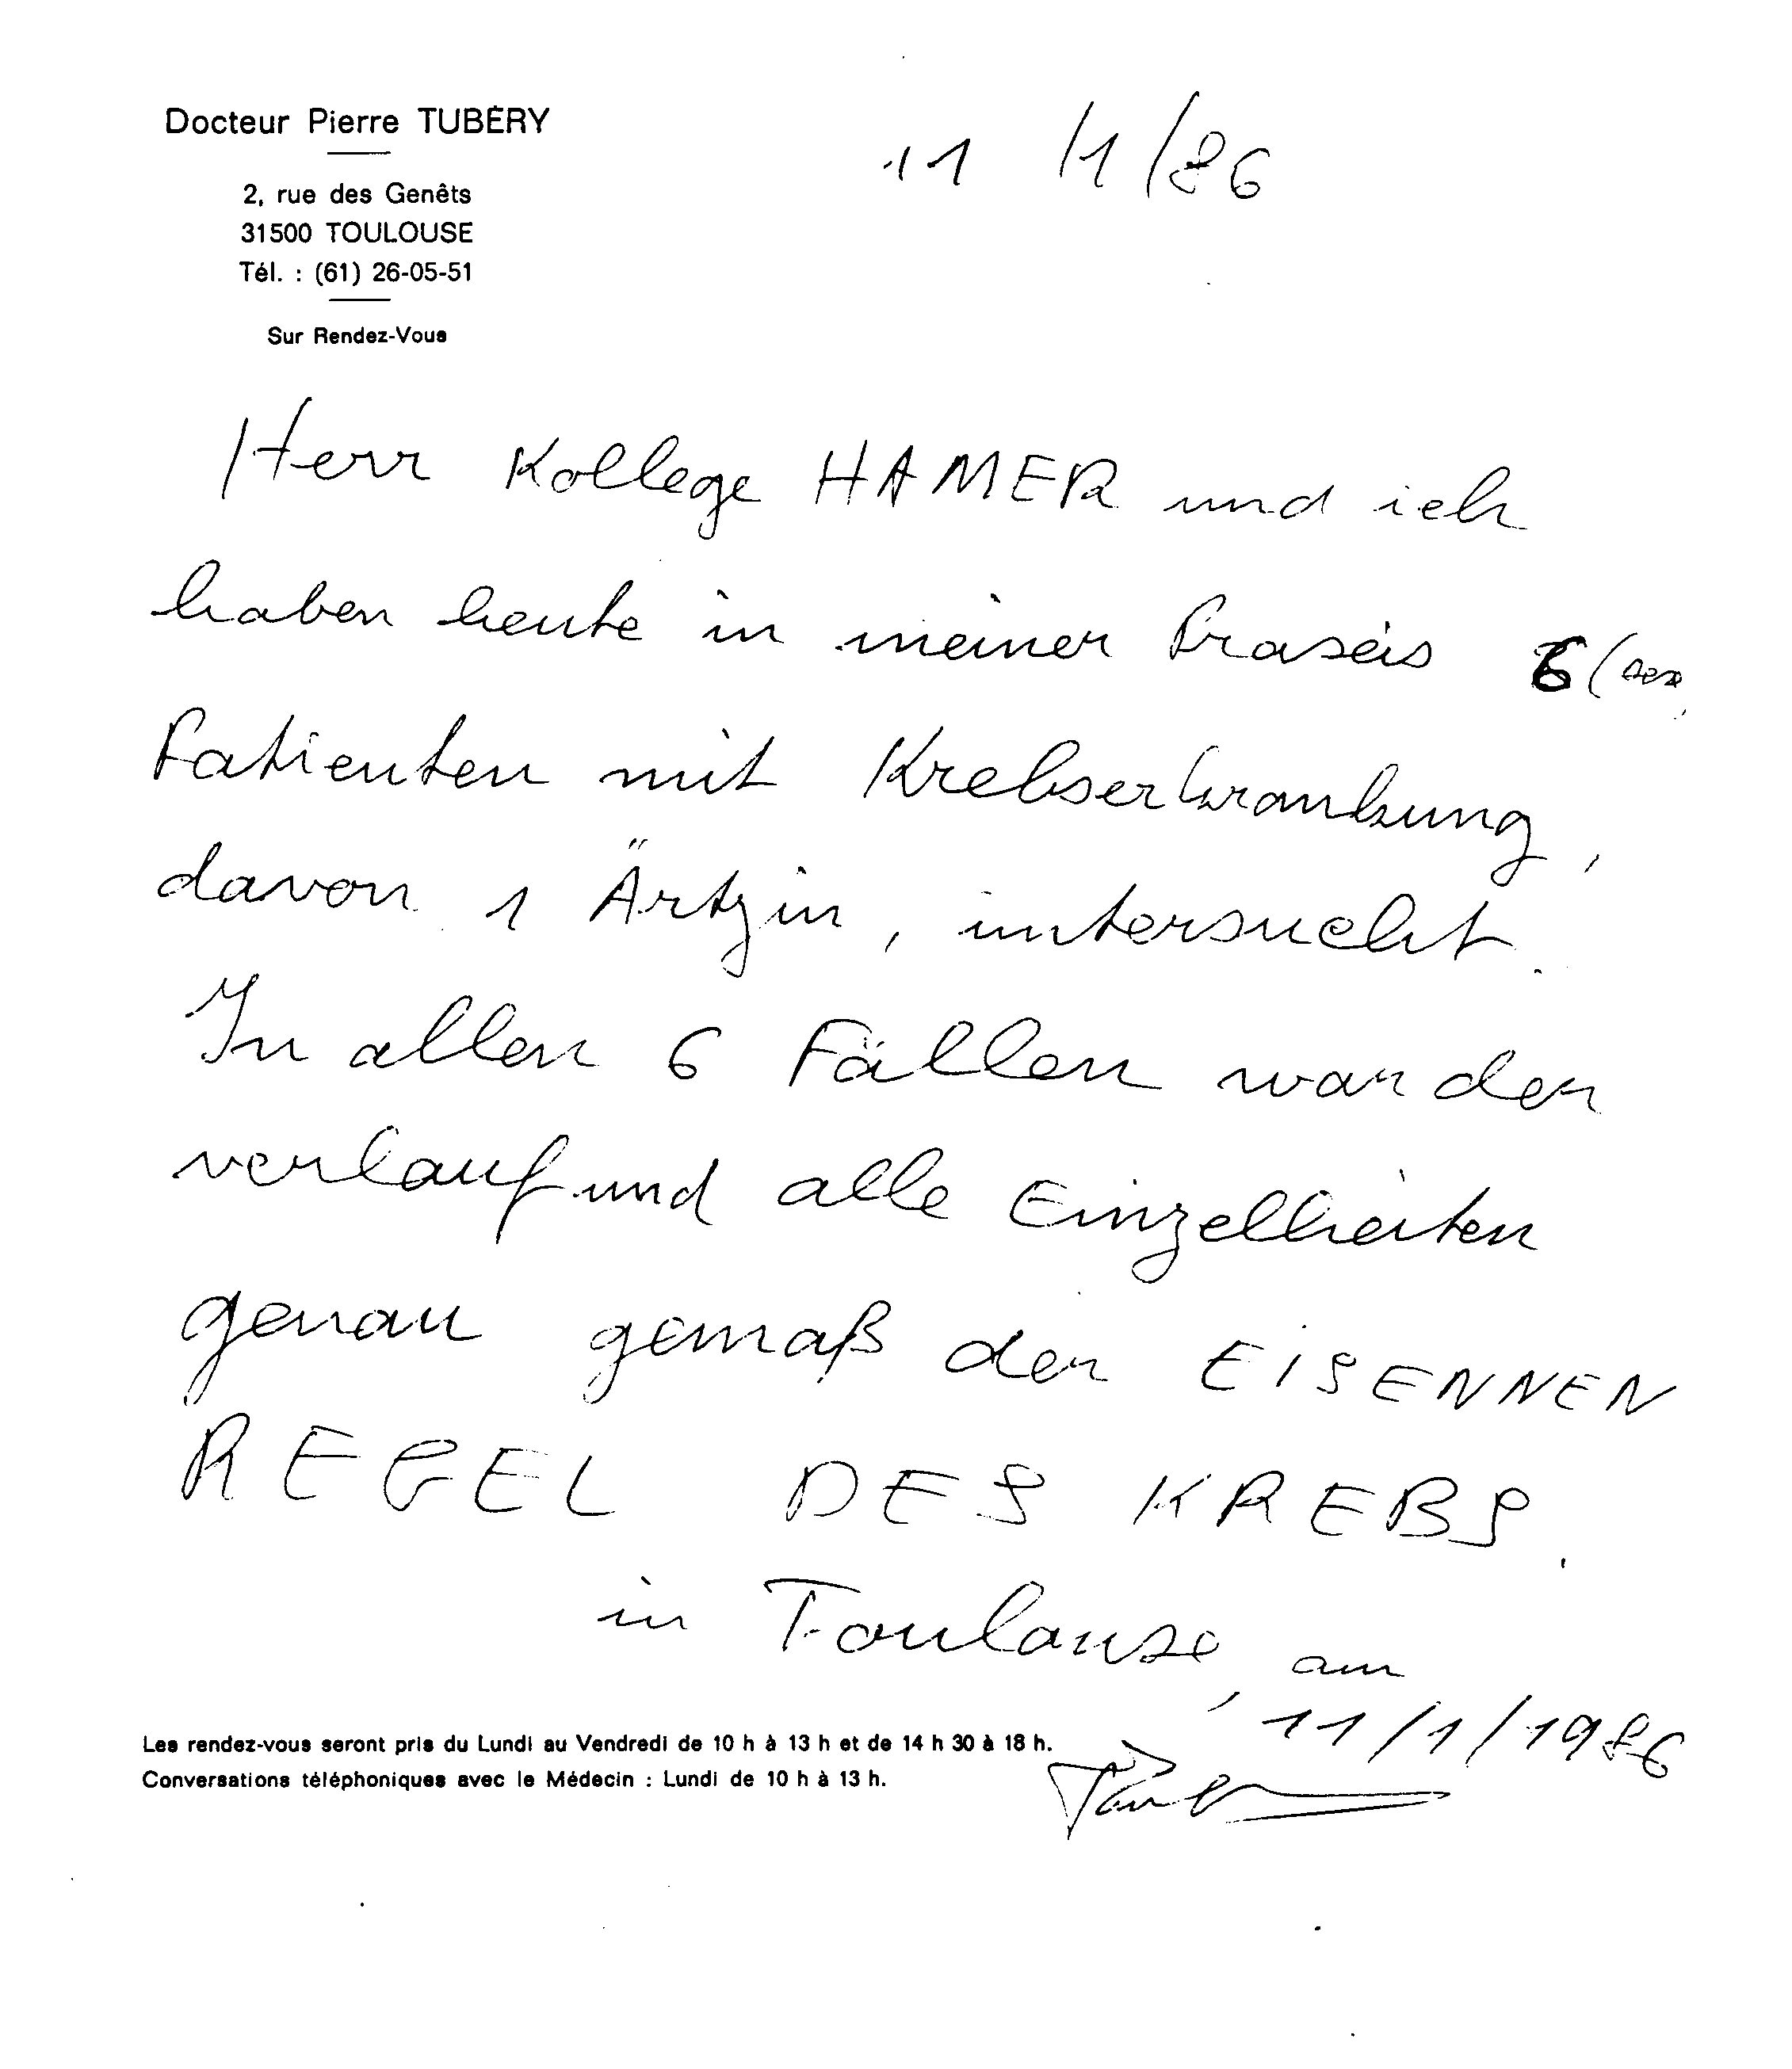 Docteur Pierre TUBÉRY
2, rue des Genêts
31500 TOULOUSE
Tél. : (61) 26-05-51
Sur Rendez-Vous
11/1/86
Herr Kollege HAMER und ich
haben heute in meiner Praxis 6 (
Patienten mit Krebserkrankung,
davon 1 Ärtzin, untersucht.
In allen 6 Fällen war der
verlauf und alle Einzelheiten
genau gemaß der EISENNEN
REGEL DES KREBS.
in Toulouse, am
11/1/1986
Les rendez-vous seront pris du Lundi au Vendredi de 10 h à 13 h et de 14 h 30 à 18 h.
Conversations téléphoniques avec le Médecin : Lundi de 10 h à 13 h.